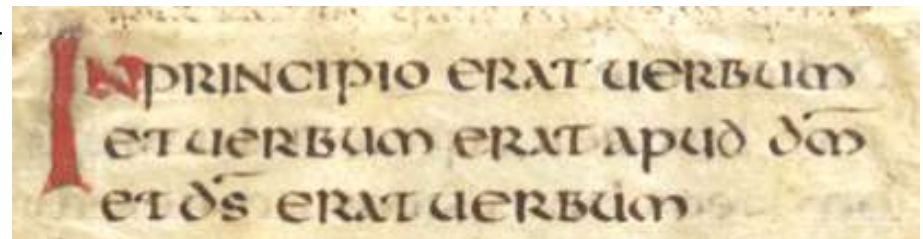 IN PRINCIPIO ERAT UERBUM
ET UERBUM ERAT APUD D̄M̄
ET D̄S̄ ERAT UERBUM